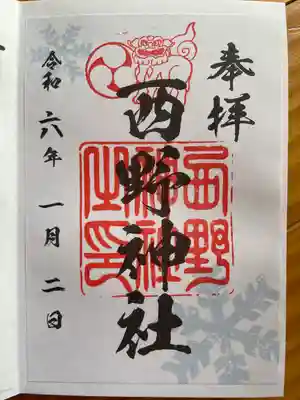 奉拝
西野神社
西野神社之印
令和六年一月二日